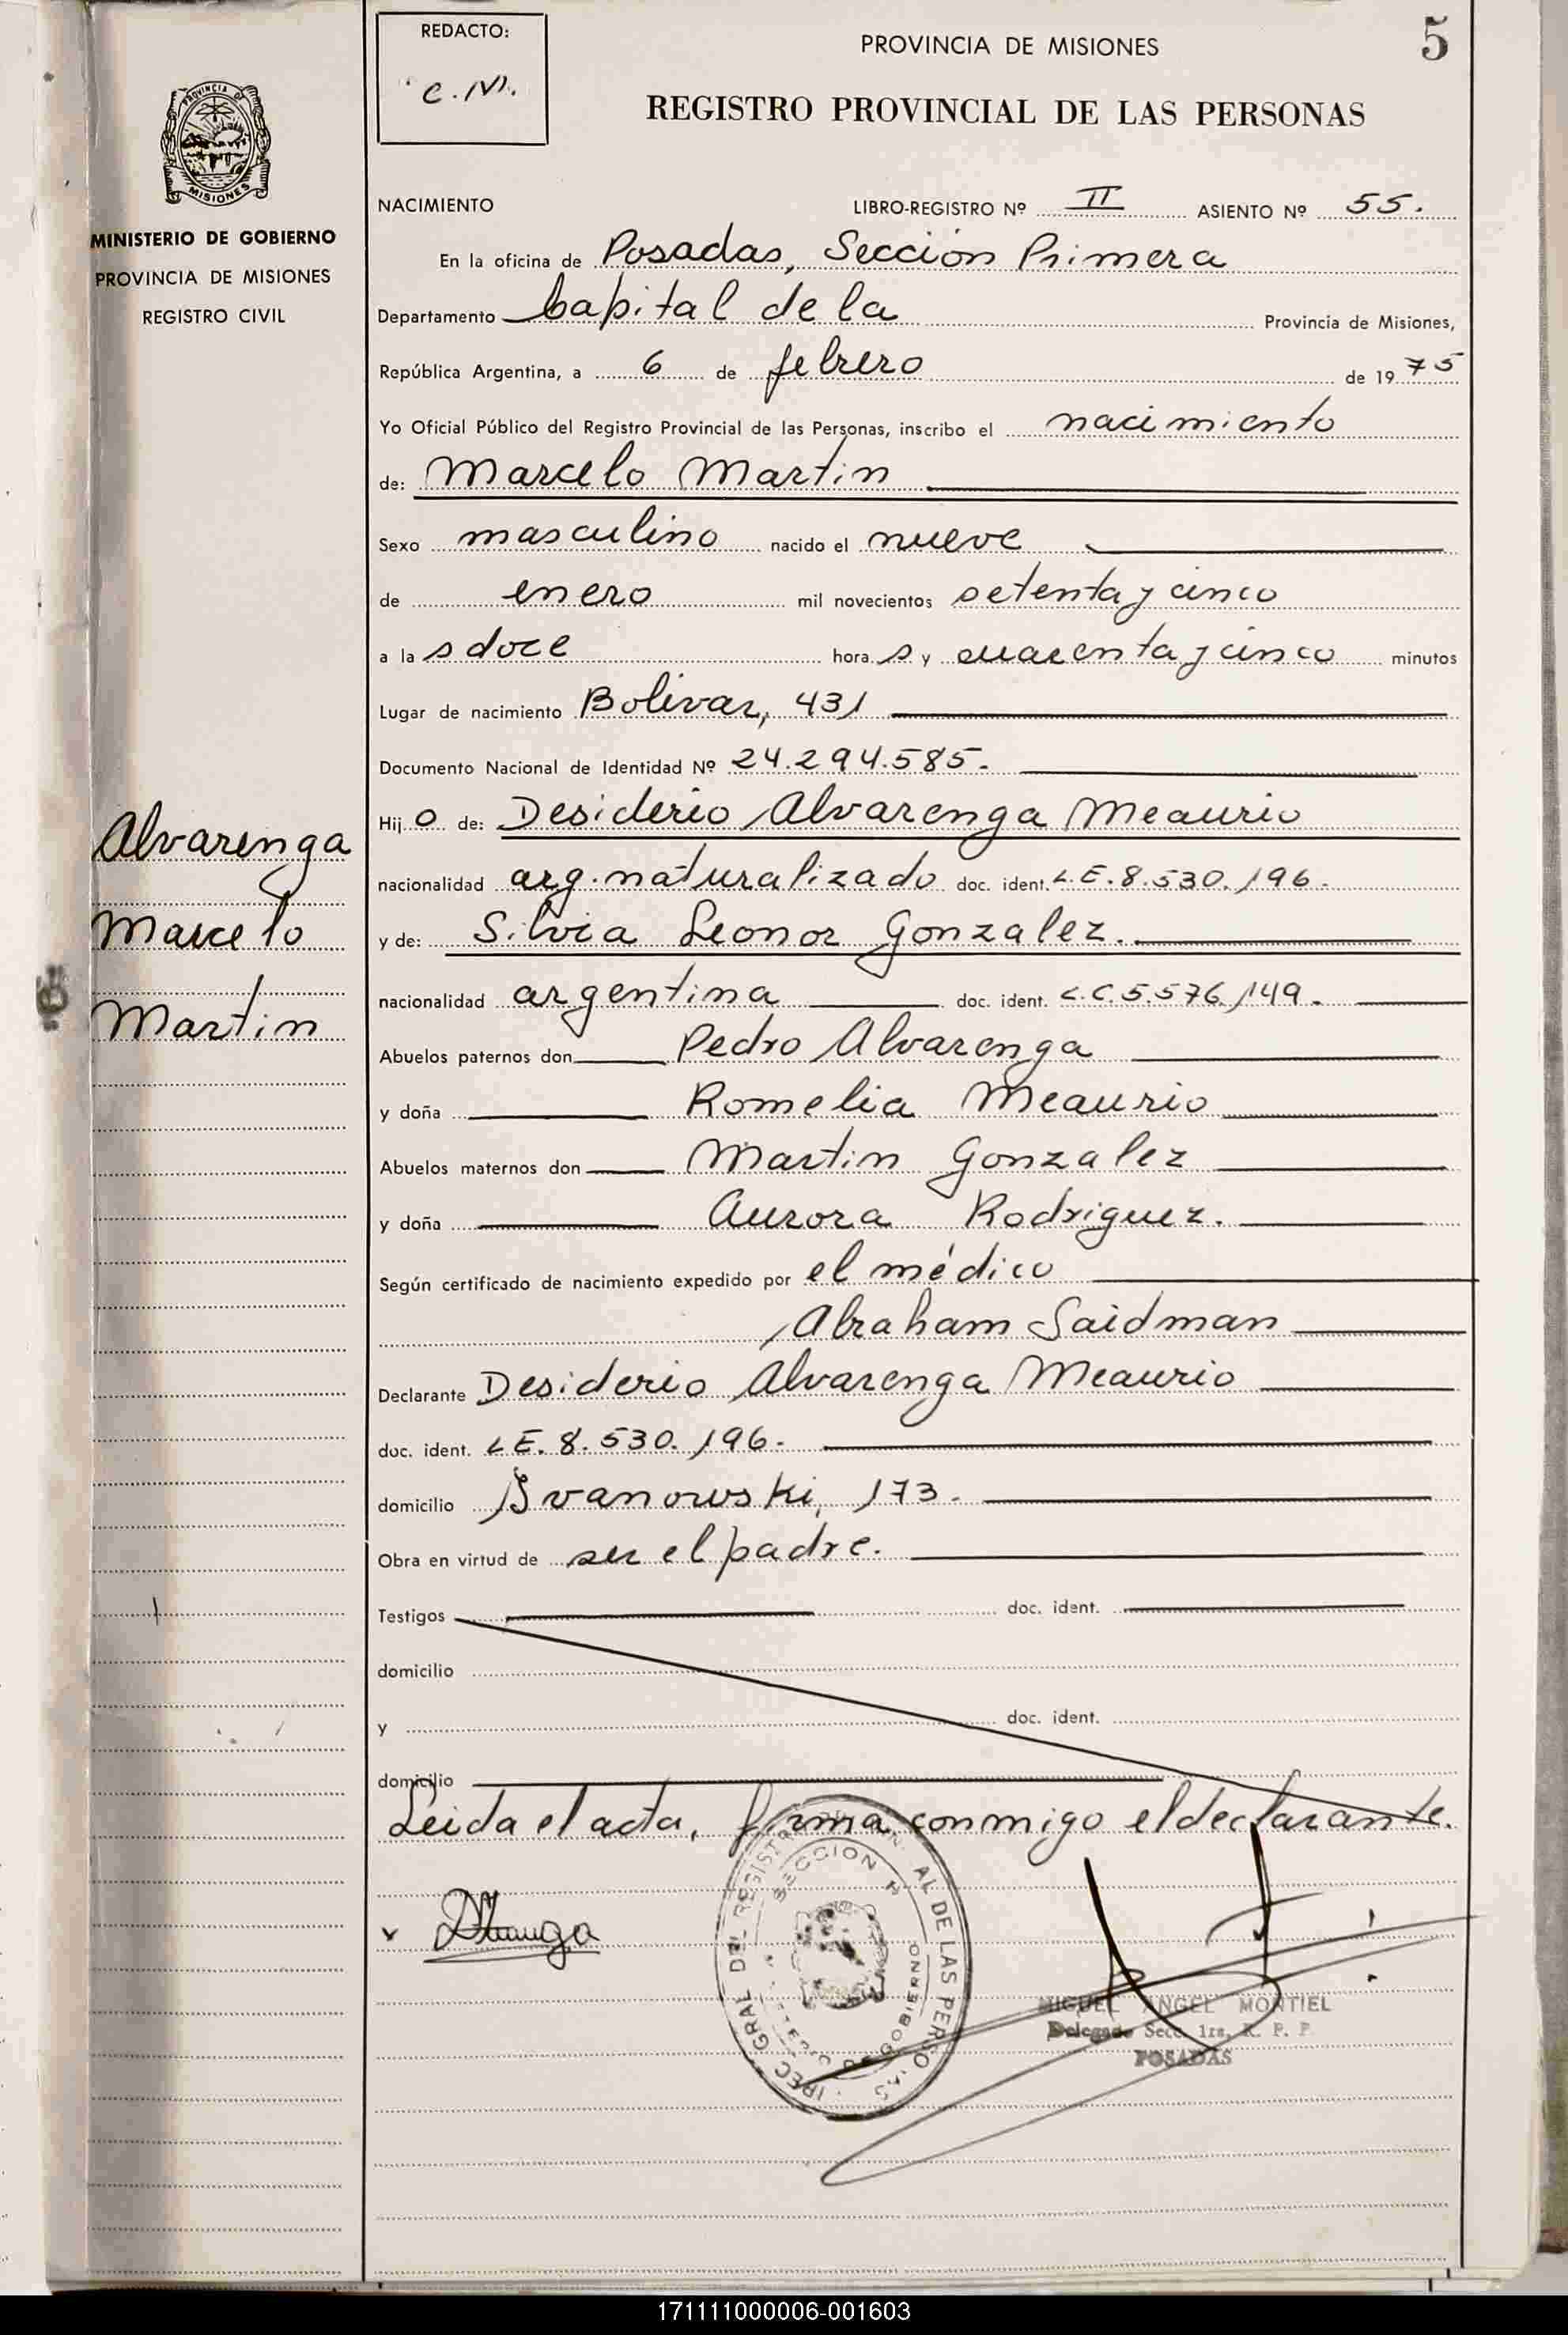 REDACTO:
C.M.
PROVINCIA DE MISIONES
5
REGISTRO PROVINCIAL DE LAS PERSONAS
PROVINCIA DE
MISIONES
MINISTERIO DE GOBIERNO
PROVINCIA DE MISIONES
REGISTRO CIVIL
NACIMIENTO LIBRO-REGISTRO Nº II ASIENTO Nº 55.
En la oficina de Posadas, Sección Primera
Departamento Capital de la Provincia de Misiones,
República Argentina, a 6 de febrero de 1975
Yo Oficial Público del Registro Provincial de las Personas, inscribo el nacimiento
de: Marcelo Martin
Sexo masculino nacido el nueve
de enero mil novecientos setenta y cinco
a las doce horas y cuarenta y cinco minutos
Lugar de nacimiento Bolivar, 431
Documento Nacional de Identidad Nº 24.294.585.
Hijo de: Desiderio Alvarenga Meaurio
nacionalidad arg. naturalizado doc. ident. L.E. 8.530.196.
y de: Silvia Leonor Gonzalez.
nacionalidad argentina doc. ident. L.C. 5.576.149.
Abuelos paternos don Pedro Alvarenga
y doña Romelia Meaurio
Abuelos maternos don Martin Gonzalez
y doña Aurora Rodriguez.
Según certificado de nacimiento expedido por el médico
Abraham Saidman
Declarante Desiderio Alvarenga Meaurio
doc. ident. L.E. 8.530.196.
domicilio Ivanowski, 173.
Obra en virtud de ser el padre.
Testigos doc. ident.
domicilio
y doc. ident.
domicilio
Leida el acta, firma conmigo el declarante.
Alvarenga
Marcelo
Martin
SECCION
GRAL DEL REGISTRO AL DE LAS PERSONAS
GOBIERNO
MIGUEL ANGEL MONTIEL
Delegado Secc. 1ra. R. P. P.
POSADAS
171111000006-001603